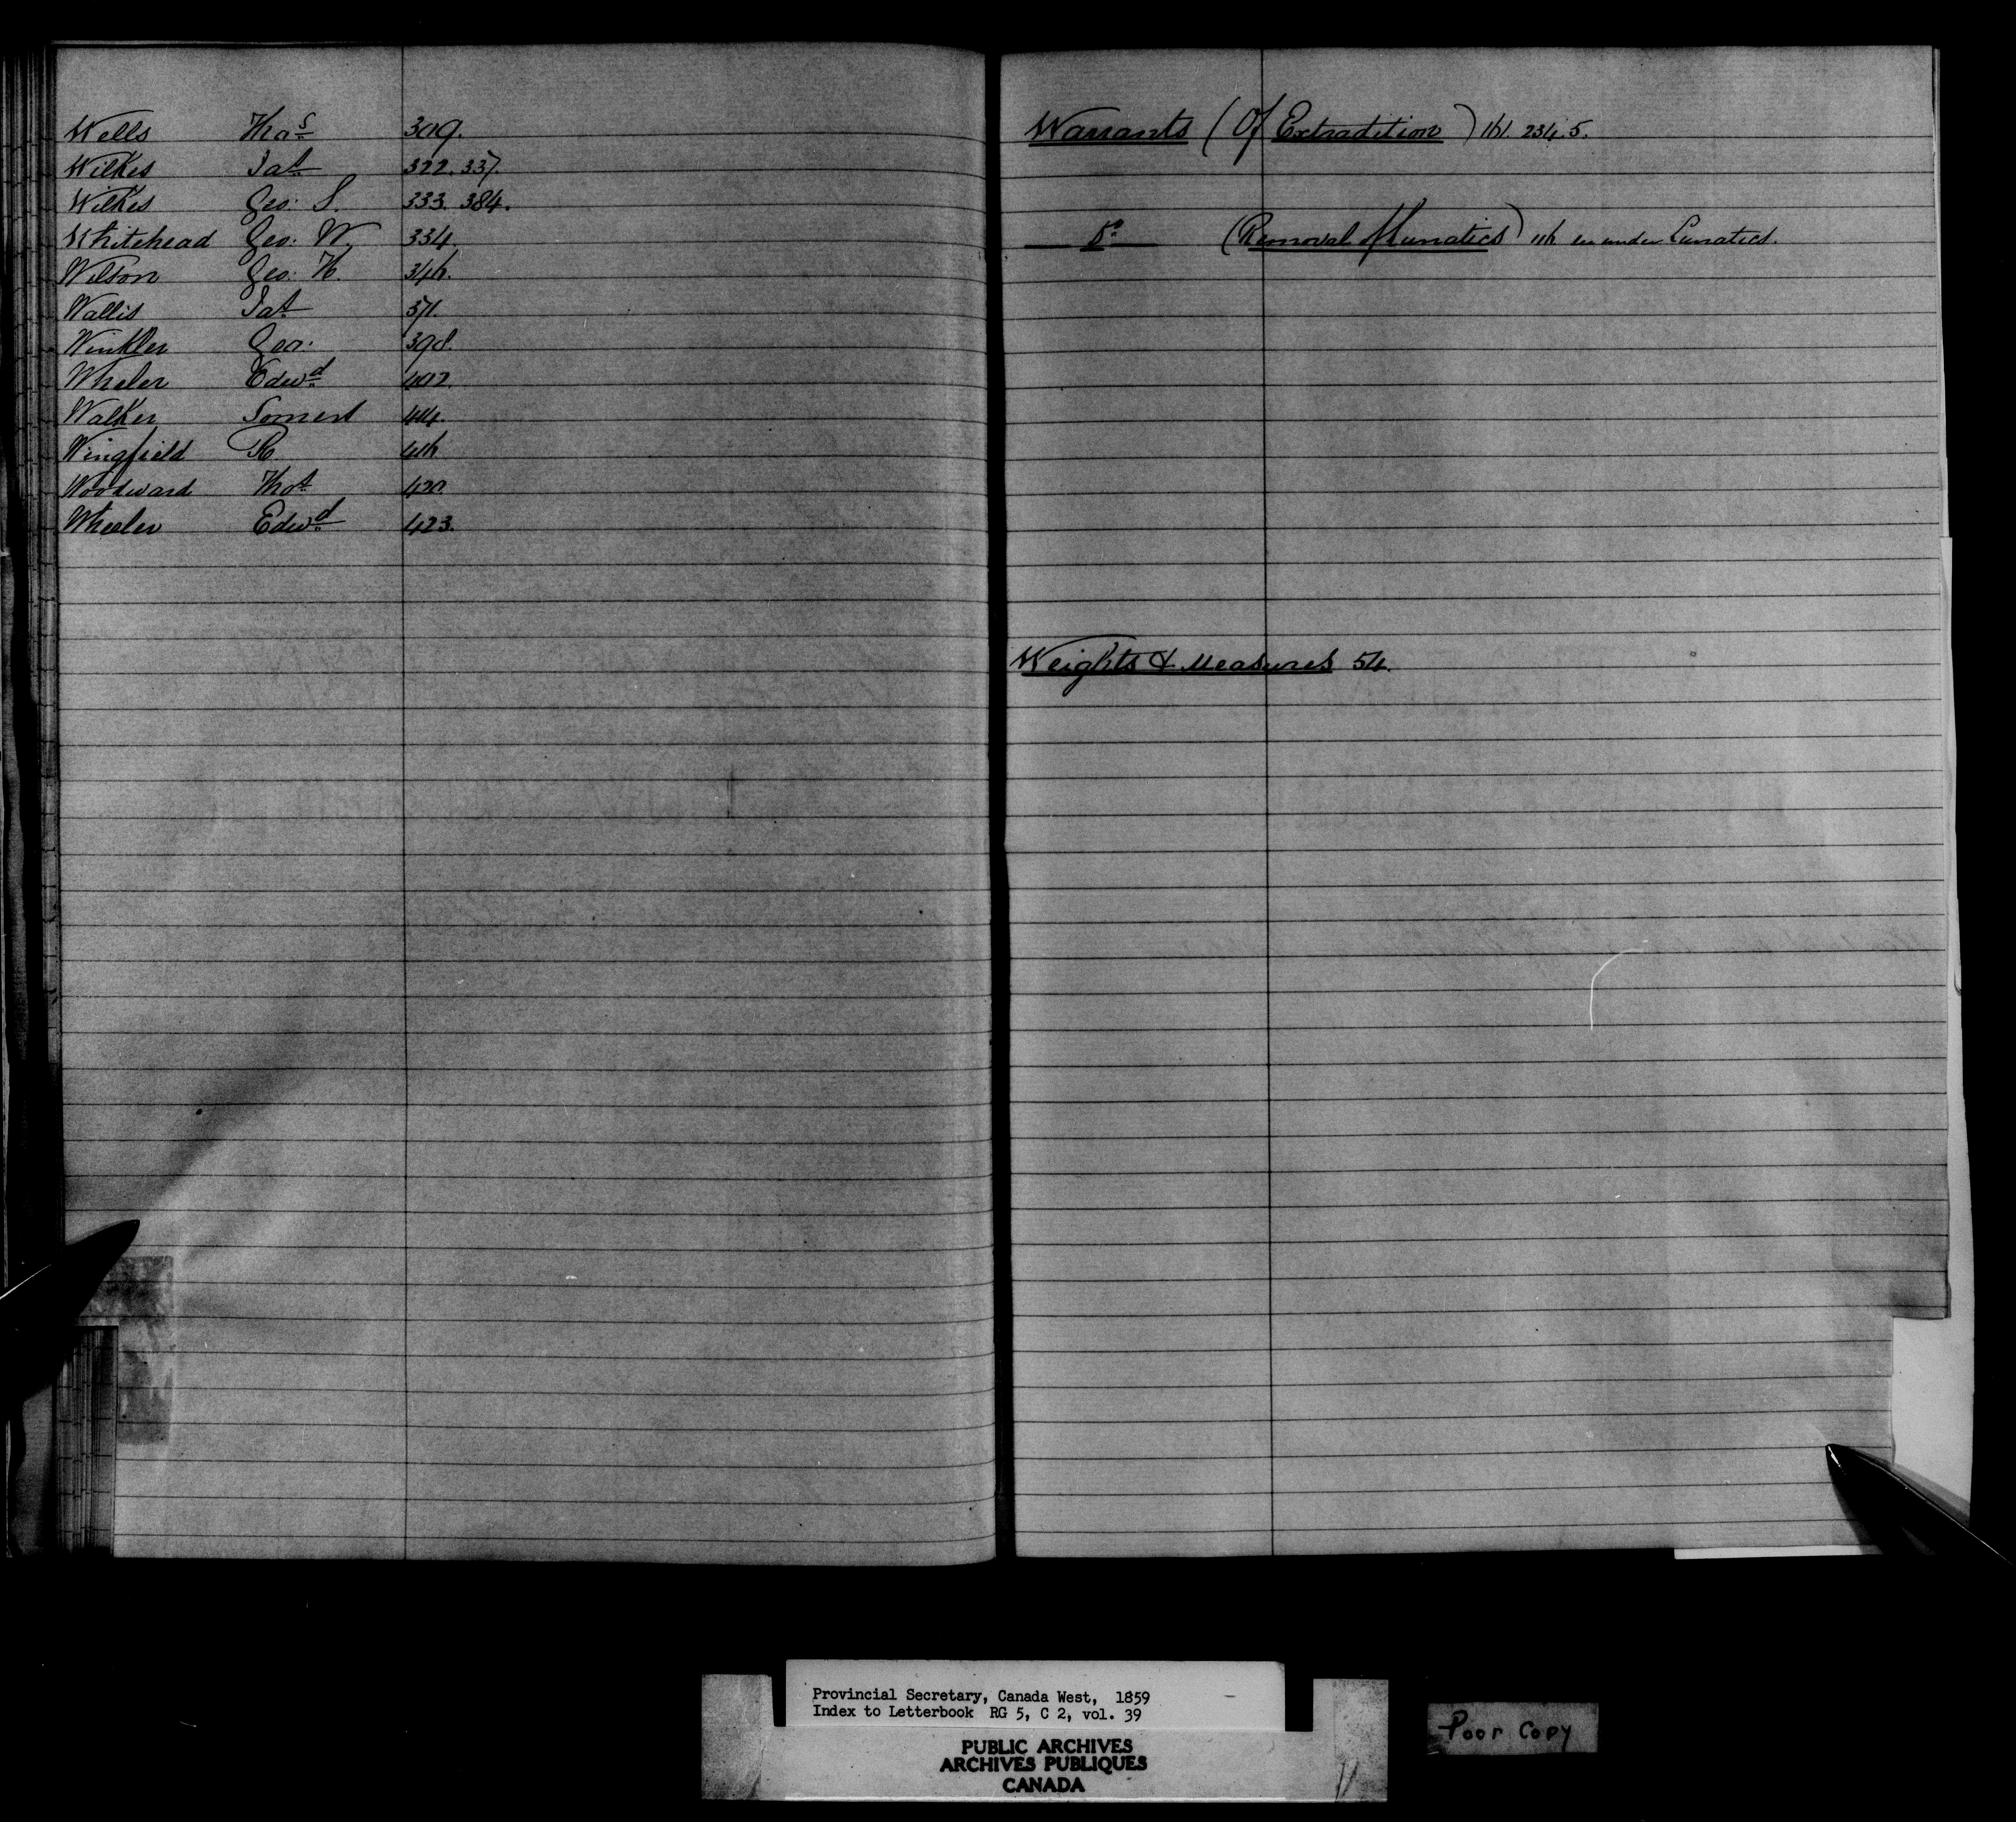 Wells Thos 309.
Wilkes Jas 322. 337.
Wilkes Geo: S. 333. 384.
Whitehead Geo: W. 334.
Wilson Geo: H. 346.
Wallis Jas 371.
Winkler Geo: 398.
Wheler Edwd 402.
Walker 414.
Wingfield R. 416
Woodward Thos 420
Wheeler Edwd 423.
Warrants (Of Extradition) 161. 234. 5.
Do (Removal of Lunatics) 116 under Lunatics.
Weights & Measures 54.
Provincial Secretary, Canada West, 1859
Index to Letterbook RG 5, C 2, vol. 39
PUBLIC ARCHIVES
ARCHIVES PUBLIQUES
CANADA
Poor Copy